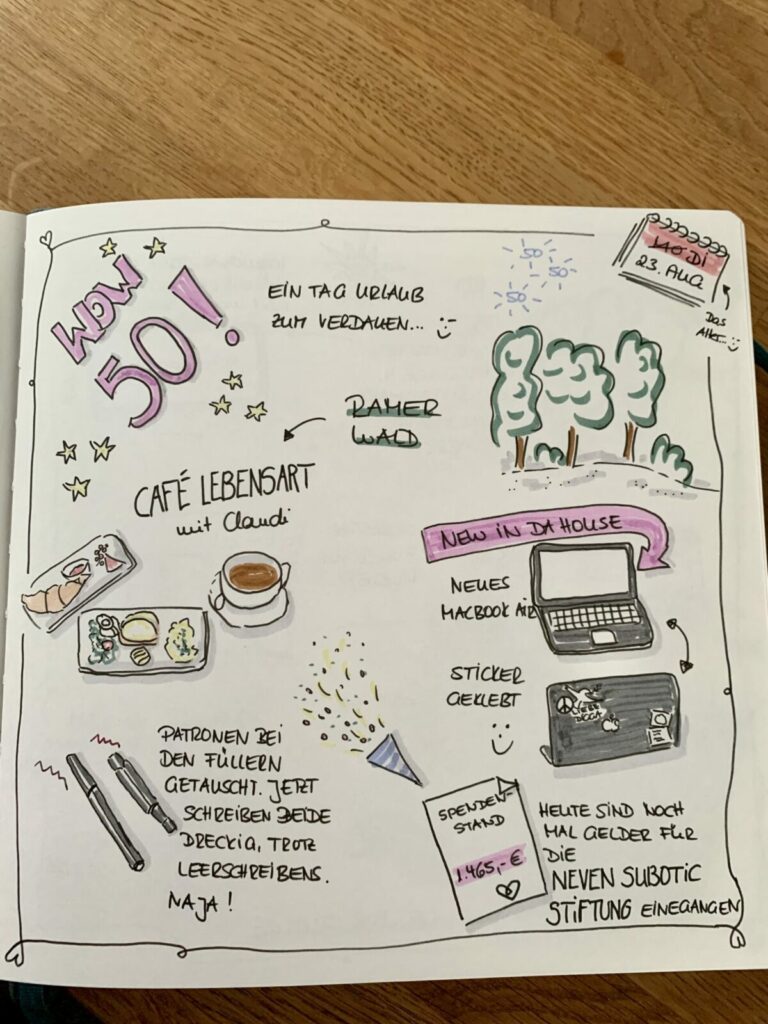 WOW
50!
EIN TAG URLAUB
ZUM VERDAUEN...
50
50
50
23. AUG
DAS
ALTER...
RAMER
WALD
CAFÉ LEBENSART
mit Claudi
NEW IN DA HOUSE
NEUES
MACBOOK AIR
STICKER
GEKLEBT
PATRONEN BEI
DEN FÜLLERN
GETAUSCHT. JETZT
SCHREIBEN BEIDE
DRECKIG, TROTZ
LEERSCHREIBENS.
NAJA!
SPENDEN-
STAND
1.465,- €
HEUTE SIND NOCH
MAL GELDER FÜR
DIE
NEVEN SUBOTIC
STIFTUNG EINEGANGEN